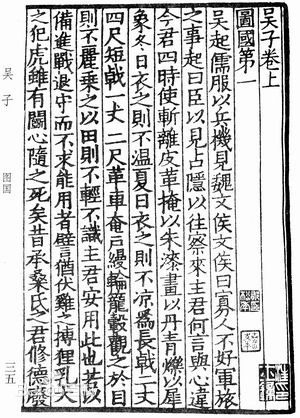 吳子卷上
圖國第一
吳起儒服以兵機見魏文侯文侯曰寡人不好軍旅
之事起曰臣以見占隱以往察來主君何言與心違
今君四時使斬離皮革掩以朱漆畫以丹青爍以犀
象冬日衣之則不温夏日衣之則不凉爲長戟二丈
四尺短戟一丈二尺革車奄戶縵輪籠轂觀之於目
則不麗乗之以田則不輕不識主君安用此也若以
備進戰退守而不求能用者譬猶伏雞之搏狸乳犬
之犯虎雖有鬭心隨之死矣昔承桑氏之君修德廢
吴子 图国
三五